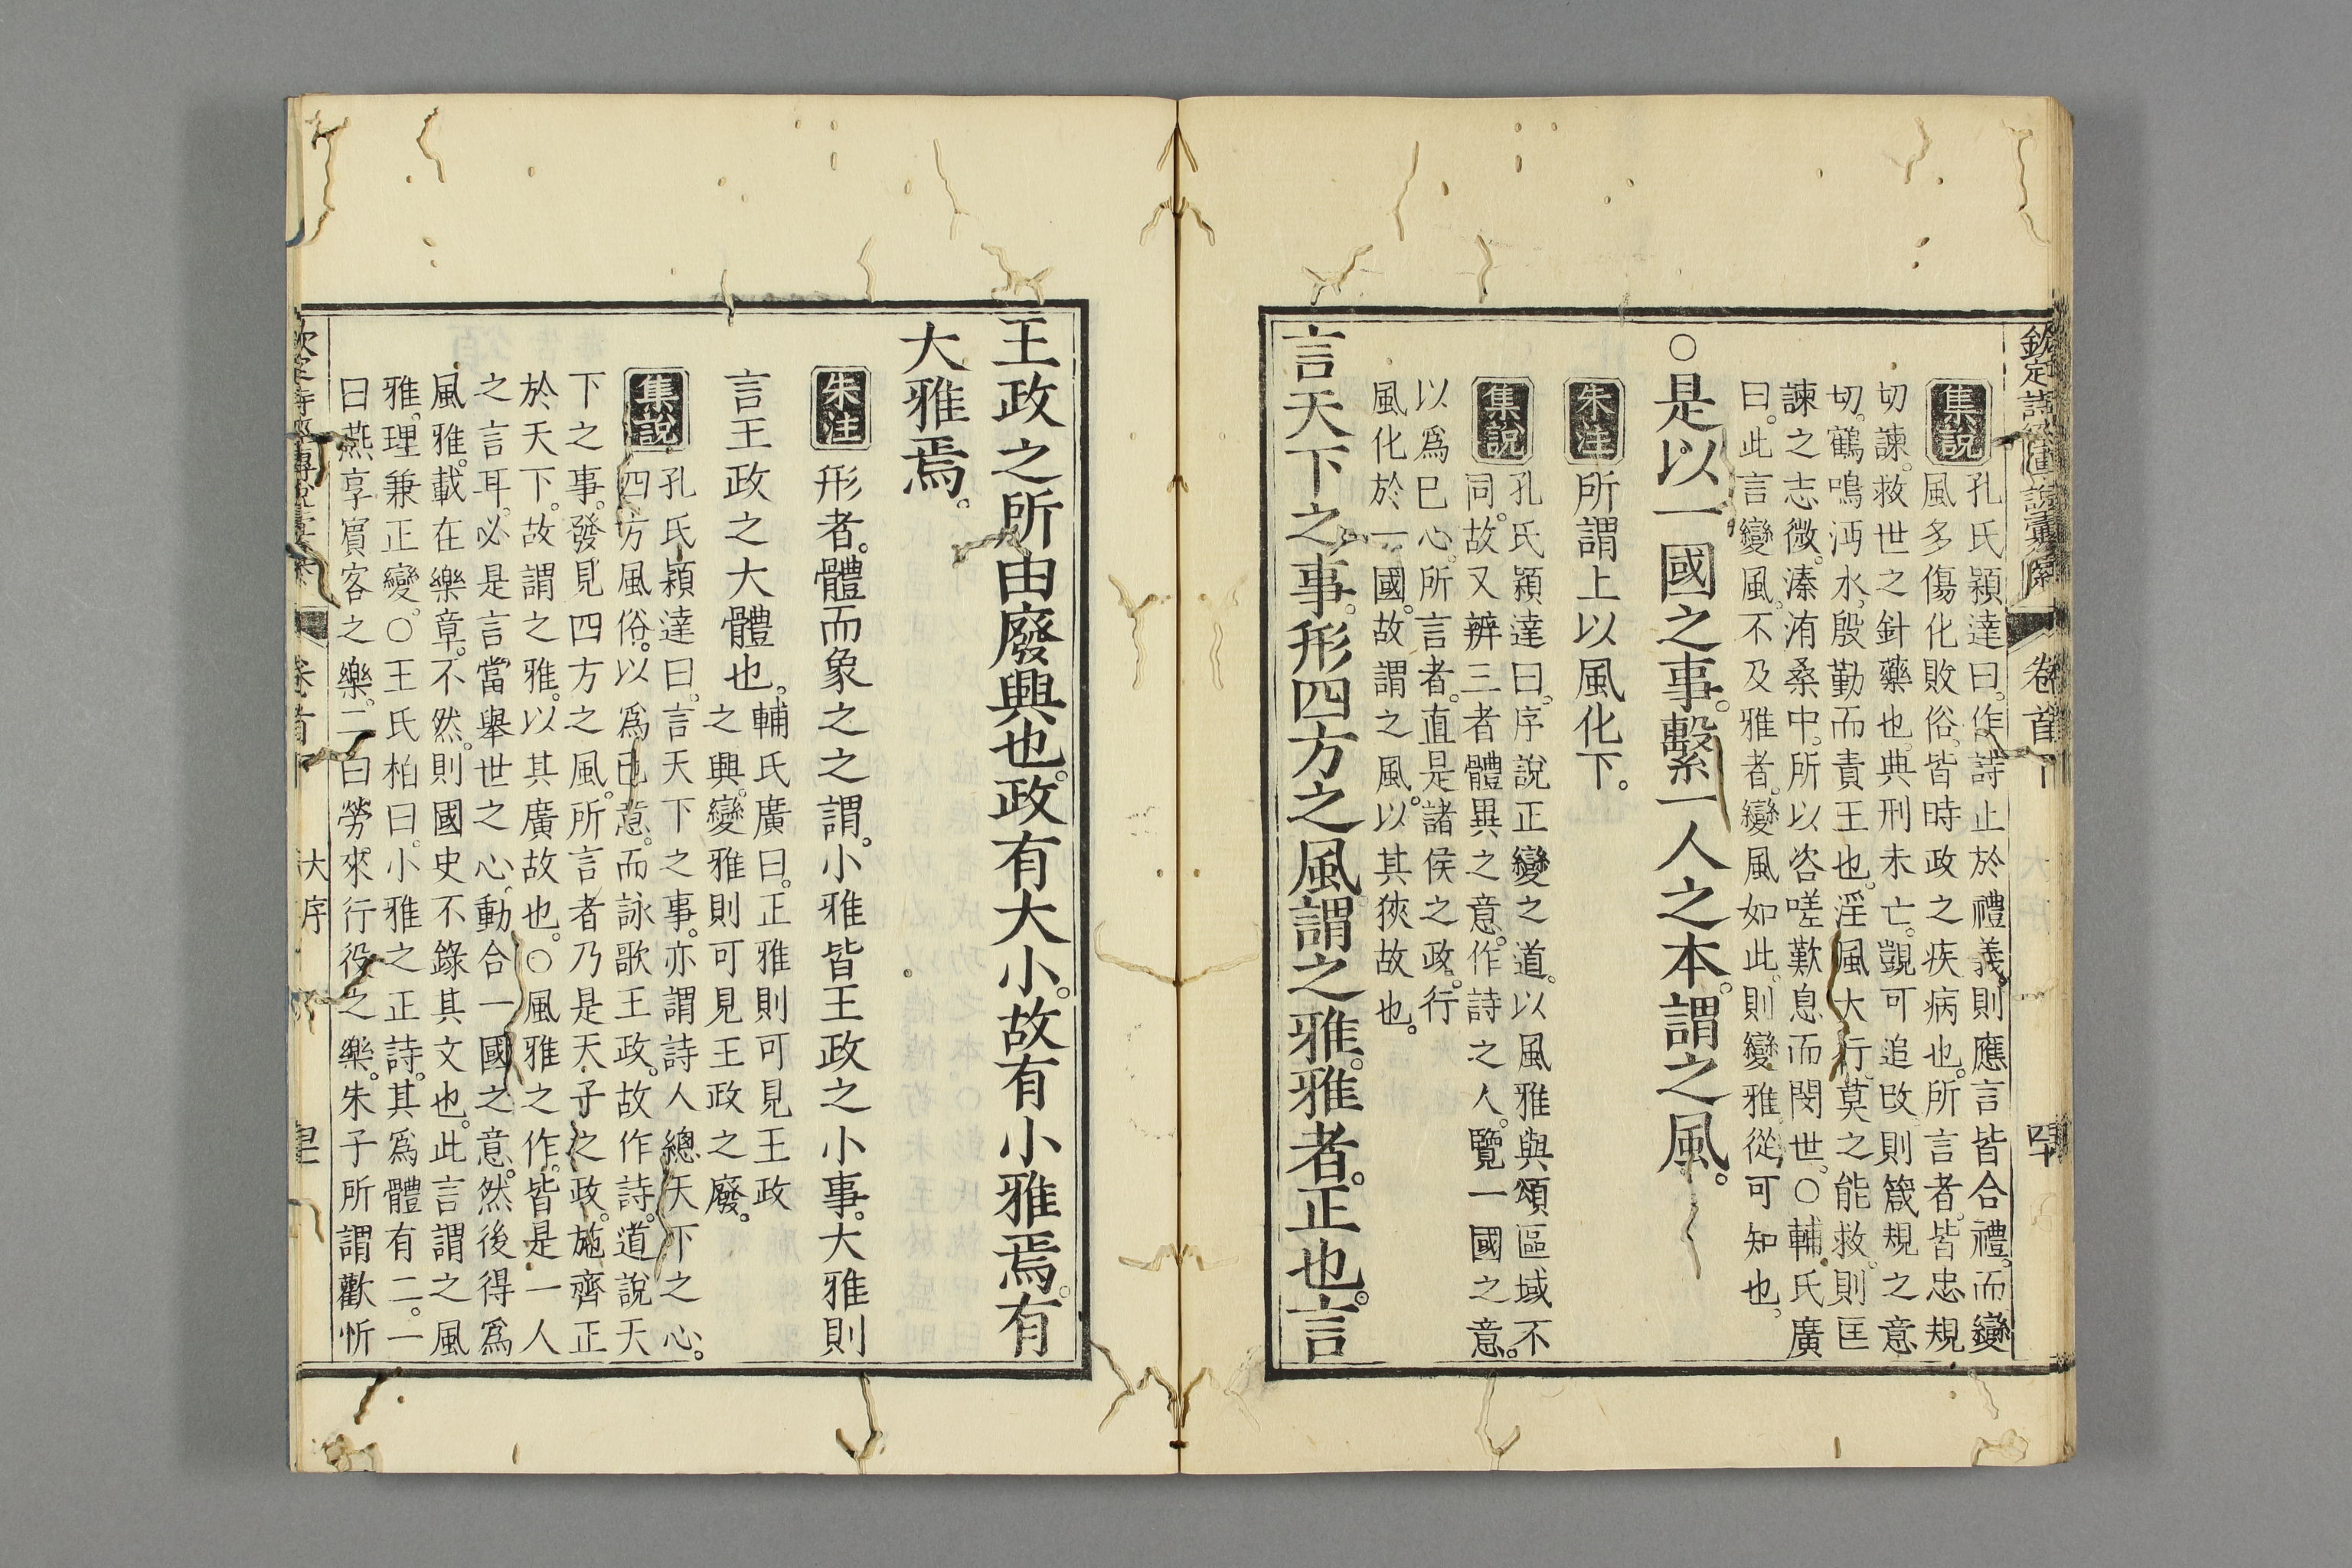 集說
孔氏穎達曰。作詩止於禮義。則應言皆合禮。而變
風多傷化敗俗。皆時政之疾病也。所言者。皆忠規
切諫。救世之針藥也。典刑未亡。覬可追改。則箴規之意
切。鶴鳴沔水。殷勤而責王也。淫風大行。莫之能救。則匡
諫之志微。溱洧桑中。所以咨嗟歎息而閔世。○輔氏廣
曰。此言變風。不及雅者。變風如此。則變雅從可知也。
○是以一國之事。繫一人之本。謂之風。
朱注
所謂上以風化下。
集說
孔氏穎達曰。序說正變之道。以風雅與頌區域不
同。故又辨三者體異之意。作詩之人。覽一國之意。
以爲已心。所言者。直是諸侯之政。行
風化於一國。故謂之風。以其狹故也。
言天下之事。形四方之風。謂之雅。雅者。正也。言
王政之所由廢興也。政有大小。故有小雅焉。有
大雅焉。
朱注
形者。體而象之之謂。小雅皆王政之小事。大雅則
言王政之大體也。
輔氏廣曰。正雅則可見王政
之興。變雅則可見王政之廢。
集說
孔氏穎達曰。言天下之事。亦謂詩人總天下之心。
四方風俗。以爲已意。而詠歌王政。故作詩。道說天
下之事。發見四方之風。所言者乃是天子之政。施齊正
於天下。故謂之雅。以其廣故也。○風雅之作。皆是一人
之言耳。必是言當舉世之心。動合一國之意。然後得爲
風雅。載在樂章。不然。則國史不錄其文也。此言謂之風
雅。理兼正變。○王氏柏曰。小雅之正詩。其爲體有二。一
曰燕享賓客之樂。二曰勞來行役之樂。朱子所謂歡忻
大序